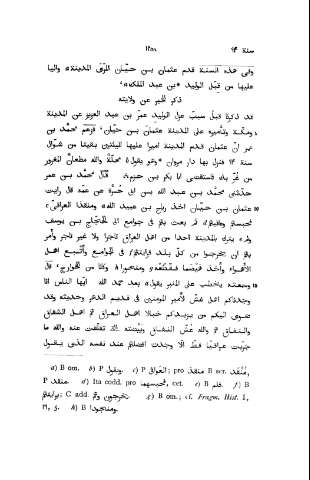 سنة ٩٤ ١٢٥٨
وفى هذه السنة قدم عثمان بن حيّان المرّى المدينة واليا
عليها من قبل الوليد بن عبد الملك
ذكر الخبر عن ولايته
قد ذكرنا قبل سبب عزل الوليد عمر بن عبد العزيز عن المدينة
ومكّة وتأميره على المدينة عثمان بن حيّان فزعم محمد بن
عمر انّ عثمان قدم المدينة اميرا عليها لليلتين بقيتا من شوّال
سنة ٩٤ فنزل بها دار مروان وهو يقول محلّة والله مظعان المغرور
من غُرّ بك فاستقضى ابا بكر بن حزم، قال محمد بن عمر
حدّثنى محمد بن عبد الله بن ابى حُرّة عن عمّه قال رايت
عثمان بن حيّان اخذ رياح بن عبيد الله ومنقذا العراقىّ
فحبسهم وعاقبهم ثم بعث بهم فى جوامع الى الحجّاج بن يوسف
ولم يترك بالمدينة احدا من اهل العراق تاجرا ولا غير تاجر وأمر
بهم ان يخرجوا من كلّ بلد فرايتهم فى الجوامع وأتبع اهل
الأهواء وأخذ هيصما فقطعه ومنحورا وكانا من الخوارج، قال
وسمعته يخطب على المنبر يقول بعد حمد الله ايها الناس انّا
وجدناكم اهل غشّ لأمير المومنين فى قديم الدهر وحديثه وقد
ضوى اليكم من يزيدكم خبالا اهل العراق هم اهل الشقاق
والنفاق هم والله عشّ النفاق وبيضته الله تفلّقت عنه والله ما
جرّبت عراقيا قطّ الّا وجدت افضلهم عند نفسه الذى يقول
a) B om. b) P ويقول. c) P العراق; pro منقذ B scr. مُنْقَد,
P منقذم. d) Ita codd. pro فحبسهما, cet. e) B فلم. f) B
برايتهم; C add. يخرجون وهم. g) B om.; cf. Fragm. Hist. I,
h) B ومناجودا.